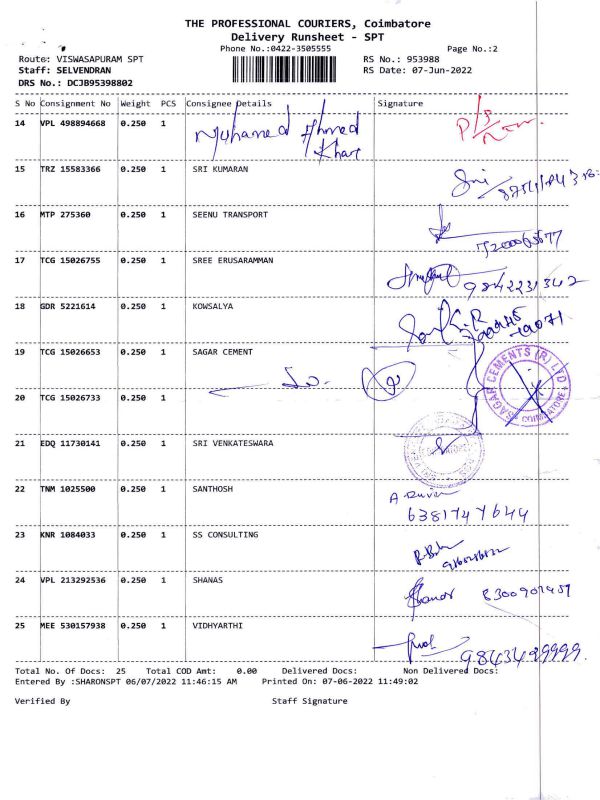 THE PROFESSIONAL COURIERS, Coimbatore
Delivery Runsheet - SPT
Phone No.:0422-3505555 Page No.:2
Route: VISWASAPURAM SPT RS No.: 953988
Staff: SELVENDRAN RS Date: 07-Jun-2022
DRS No.: DCJB95398802
S No Consignment No Weight PCS Consignee Details Signature
14 VPL 498894668 0.250 1 Muhamed Ahmed
Khan
15 TRZ 15583366 0.250 1 SRI KUMARAN
16 MTP 275360 0.250 1 SEENU TRANSPORT
17 TCG 15026755 0.250 1 SREE ERUSARAMMAN 9842231342
18 GDR 5221614 0.250 1 KOWSALYA
19 TCG 15026653 0.250 1 SAGAR CEMENT SAGAR CEMENTS (R) LTD
COIMBATORE
20 TCG 15026733 0.250 1
21 EDQ 11730141 0.250 1 SRI VENKATESWARA
22 TNM 1025500 0.250 1 SANTHOSH
6381747644
23 KNR 1084033 0.250 1 SS CONSULTING
24 VPL 213292536 0.250 1 SHANAS 8300907457
25 MEE 530157938 0.250 1 VIDHYARTHI 9843499999
Total No. Of Docs: 25 Total COD Amt: 0.00 Delivered Docs: Non Delivered Docs:
Entered By :SHARONSPT 06/07/2022 11:46:15 AM Printed On: 07-06-2022 11:49:02
Verified By Staff Signature